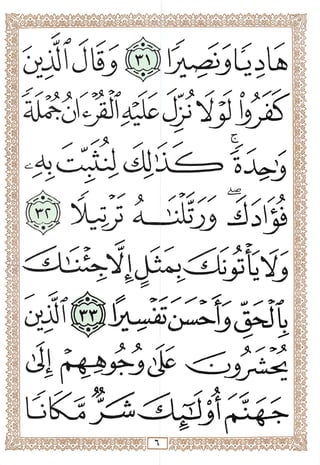 هَادِيٗا وَنَصِيرٗا ٣١ وَقَالَ ٱلَّذِينَ
كَفَرُواْ لَوۡلَا نُزِّلَ عَلَيۡهِ ٱلۡقُرۡءَانُ جُمۡلَةٗ
وَٰحِدَةٗۚ كَذَٰلِكَ لِنُثَبِّتَ بِهِۦ
فُؤَادَكَۖ وَرَتَّلۡنَٰهُ تَرۡتِيلٗا ٣٢
وَلَا يَأۡتُونَكَ بِمَثَلٍ إِلَّا جِئۡنَٰكَ
بِٱلۡحَقِّ وَأَحۡسَنَ تَفۡسِيرًا ٣٣ ٱلَّذِينَ
يُحۡشَرُونَ عَلَىٰ وُجُوهِهِمۡ إِلَىٰ
جَهَنَّمَ أُوْلَٰٓئِكَ شَرّٞ مَّكَانٗا
٦